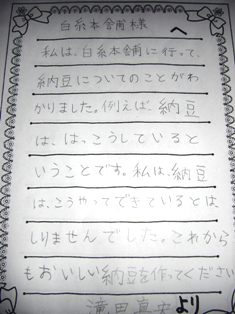 白糸本舗様へ
私は、白糸本舗に行って、
納豆についてのことがわ
かりました。例えば、納豆
は、はっこうしていると
いうことです。私は、納豆
は、こうやってできているとは
しりませんでした。これから
もおいしい納豆を作ってください
滝田真央より